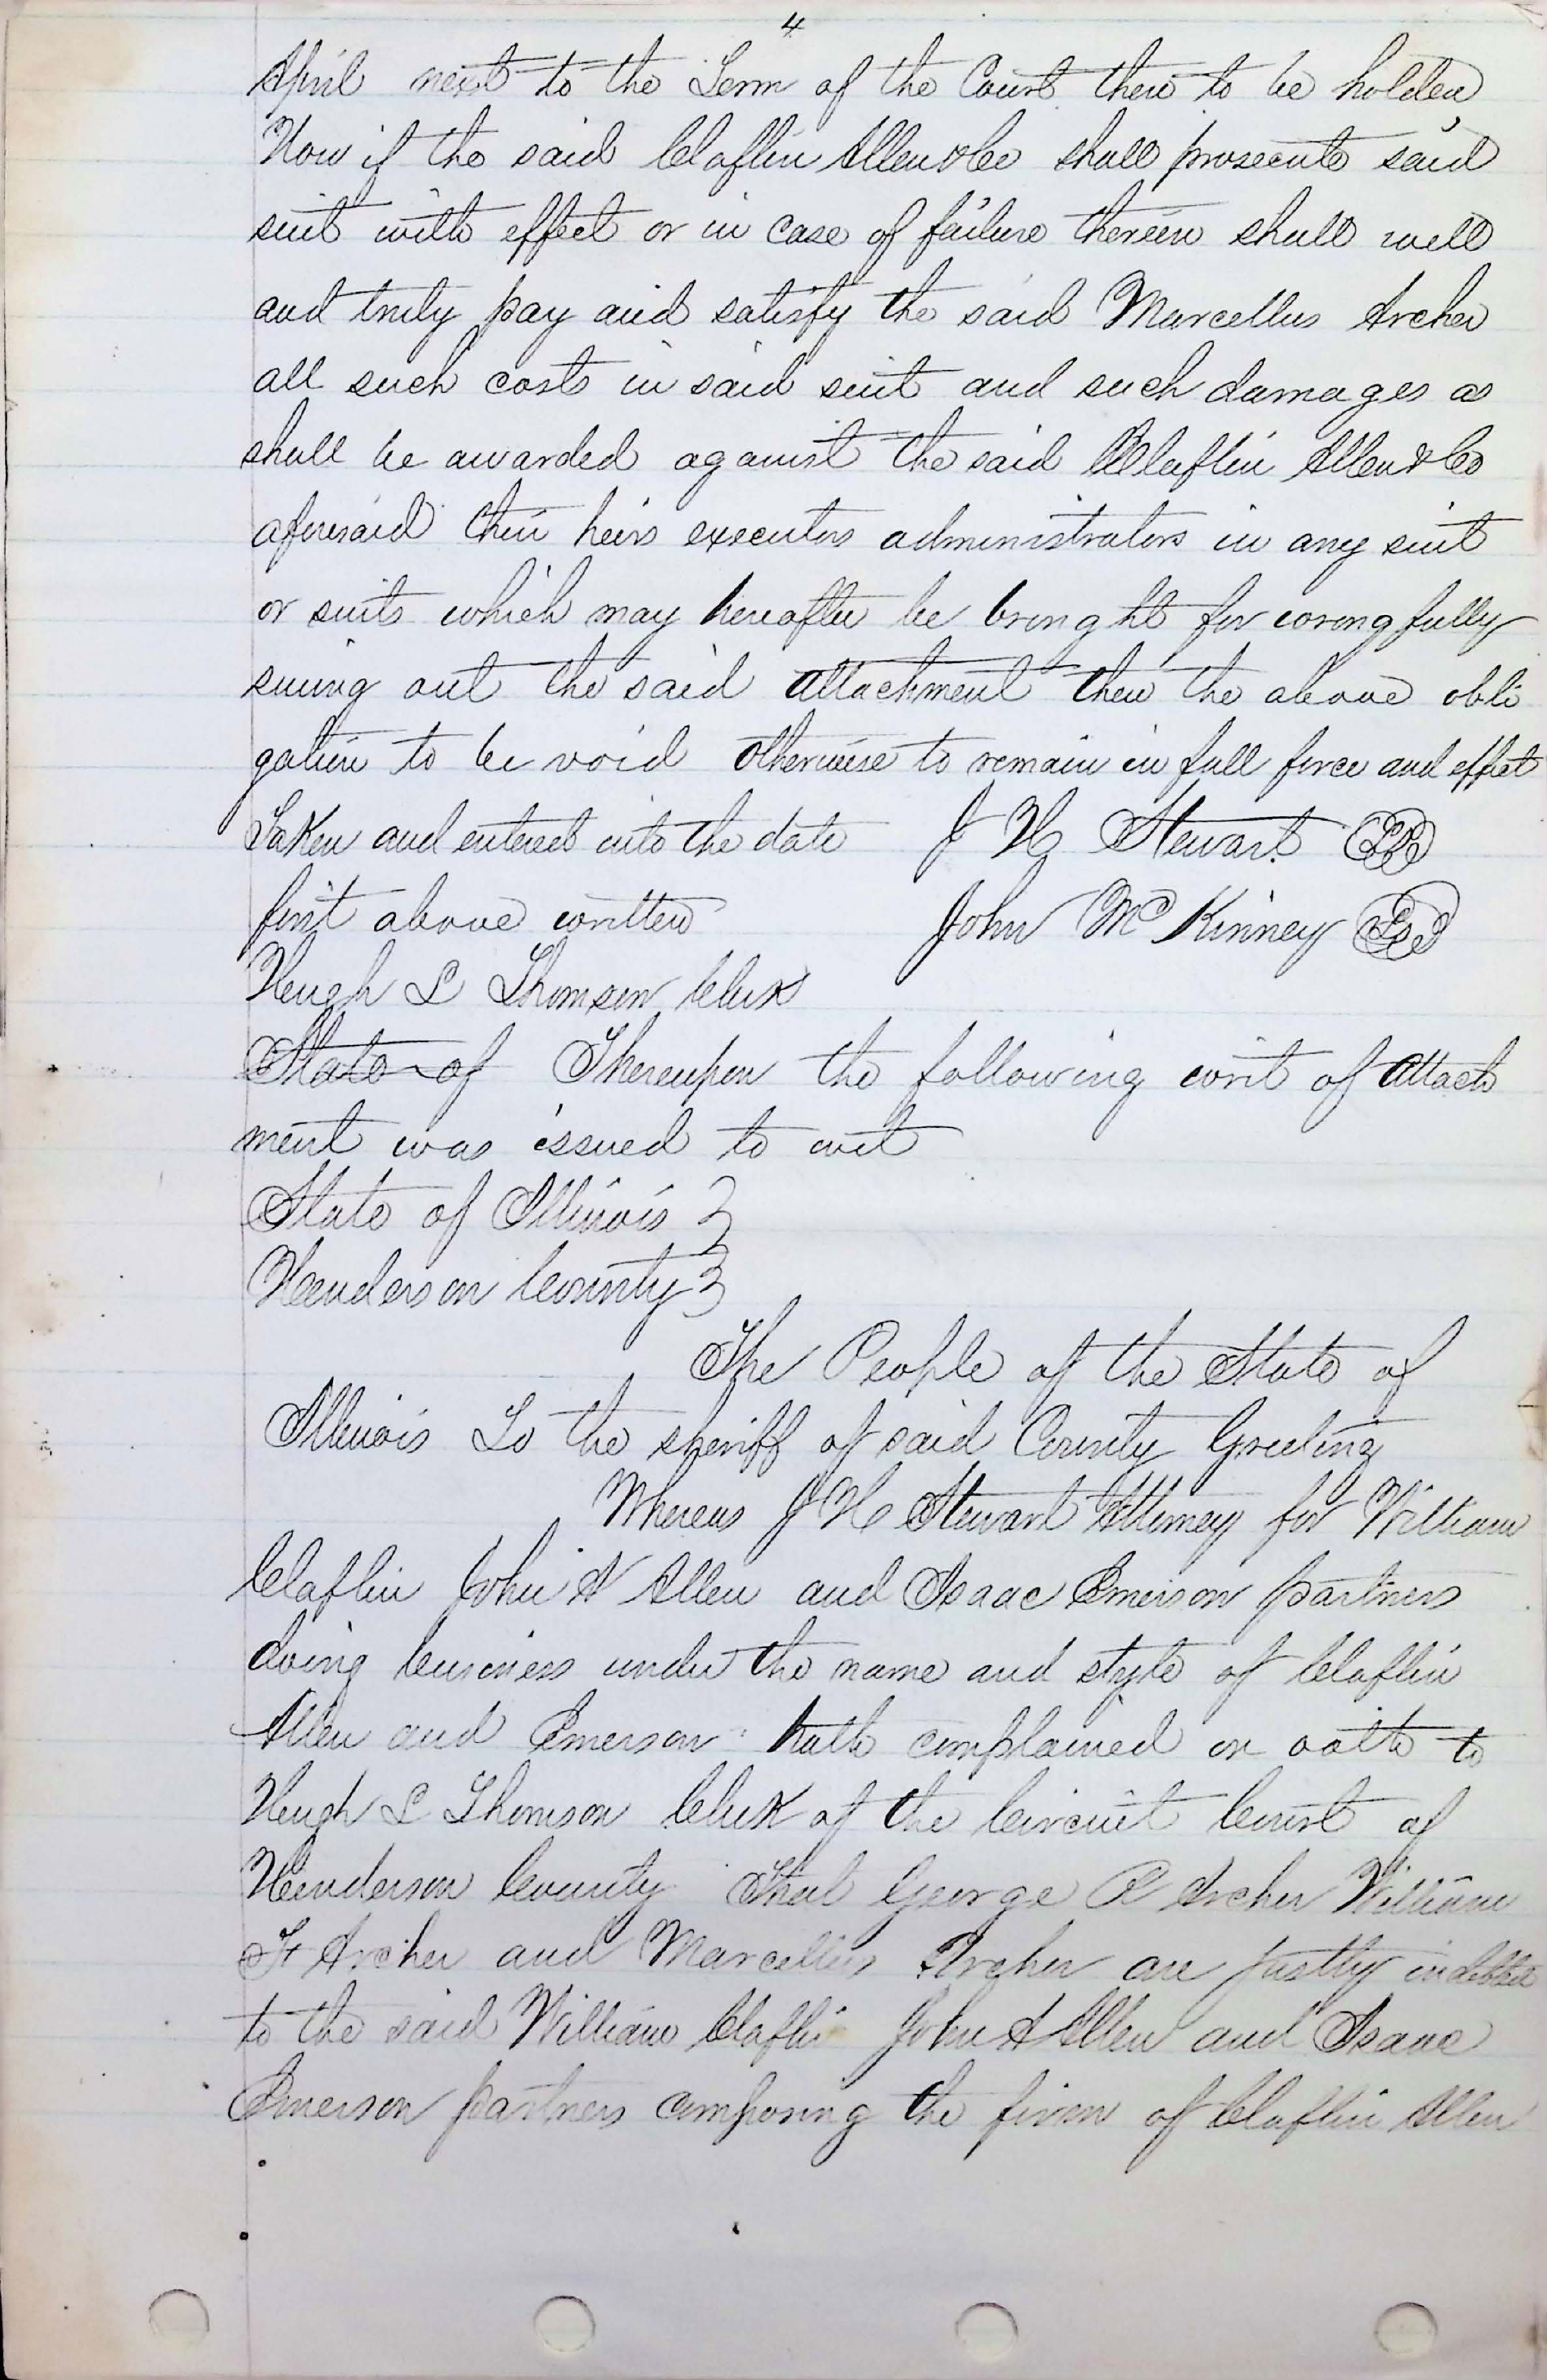 4
April next to the Term of the Court then to be holden
Now if the said Claflin Allen & Co shall prosecute said
suit with effect or in case of failure therein shall well
and truly pay and satisfy the said Marcellus Archer
all such costs in said suit and such damages as
shall be awarded against the said Claflin Allen & Co
aforesaid their heirs executors administrators in any suit
or suits which may hereafter be brought for wrongfully
suing out the said attachment then the above obli
gation to be void otherwise to remain in full force and effect
Taken and entered into the date J H Stewart
first above written John McKinney
Hugh L Thomson Clerk
State of Thereupon the following writ of Attach
ment was issued to wit
State of Illinois }
Henderson County }
The People of the State of
Illinois To the sheriff of said County Greeting
Whereas J H Stewart Attorney for William
Claflin John A Allen and Isaac Emerson partners
doing business under the name and style of Claflin
Allen and Emerson hath complained on oath to
Hugh L Thomson Clerk of the Circuit Court of
Henderson County That George R Archer William
F Archer and Marcellus Archer are justly indebted
to the said William Claflin John A Allen and Isaac
Emerson partners composing the firm of Claflin Allen